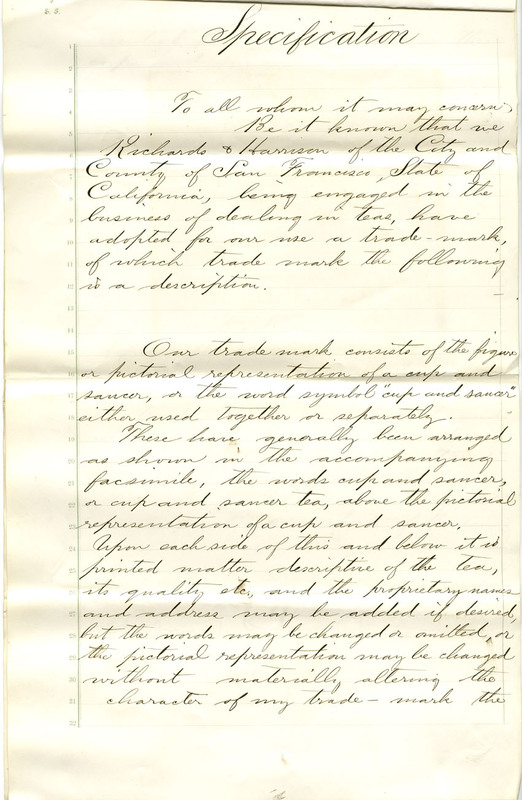 Specification
To all whom it may concern,
Be it known that we
Richards & Harrison of the City and
County of San Francisco, State of
California, being engaged in the
business of dealing in teas, have
adopted for our use a trade-mark,
of which trade mark the following
is a description.
Our trade mark consists of the figure
or pictorial representation of a cup and
saucer, or the word symbol "cup and saucer"
either used together or separately.
These have generally been arranged
as shown in the accompanying
facsimile, the words cup and saucer,
or cup and saucer tea, above the pictorial
representation of a cup and saucer.
Upon each side of this and below it is
printed matter descriptive of the tea,
its quality etc, and the proprietary names
and address may be added if desired,
but the words may be changed or omitted, or
the pictorial representation may be changed
without materially altering the
character of my trade-mark the